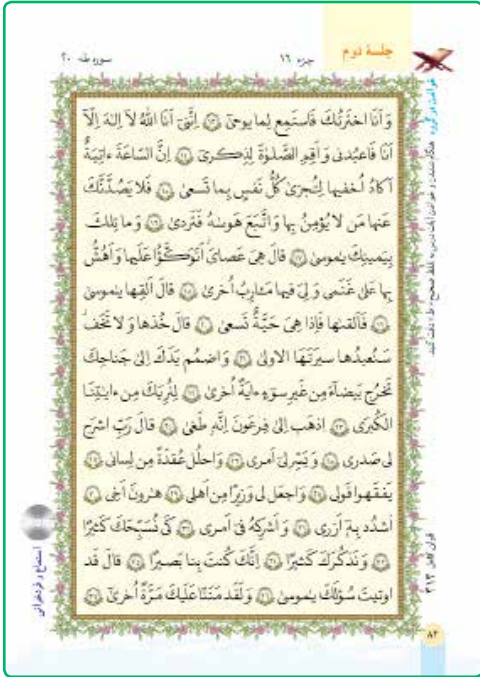 جلسهٔ دوم
جزء ۱۶
سوره طه ۲۰
وَ اَنَا اختَرتُكَ فَاستَمِع لِما يوحىٰ ﴿۱۳﴾ اِنَّنى اَنَا اللّٰهُ لا اِلٰهَ اِلّا
اَنَا فَاعبُدنى وَ اَقِمِ الصَّلوٰةَ لِذِكرى ﴿۱۴﴾ اِنَّ السّاعَةَ ءاتِيَةٌ
اَكادُ اُخفيها لِتُجزىٰ كُلُّ نَفسٍ بِما تَسعىٰ ﴿۱۵﴾ فَلا يَصُدَّنَّكَ
عَنها مَن لا يُؤمِنُ بِها وَ اتَّبَعَ هَوىٰهُ فَتَردىٰ ﴿۱۶﴾ وَ ما تِلكَ
بِيَمينِكَ يٰموسىٰ ﴿۱۷﴾ قالَ هِىَ عَصاىَ اَتَوَكَّؤُا عَلَيها وَ اَهُشُّ
بِها عَلىٰ غَنَمى وَ لِىَ فيها مَـٔارِبُ اُخرىٰ ﴿۱۸﴾ قالَ اَلقِها يٰموسىٰ
﴿۱۹﴾ فَاَلقىٰها فَاِذا هِىَ حَيَّةٌ تَسعىٰ ﴿۲۰﴾ قالَ خُذها وَ لا تَخَف
سَنُعيدُها سيرَتَهَا الاولىٰ ﴿۲۱﴾ وَ اضمُم يَدَكَ اِلىٰ جَناحِكَ
تَخرُج بَيضاءَ مِن غَيرِ سوءٍ ءايَةً اُخرىٰ ﴿۲۲﴾ لِنُرِيَكَ مِن ءايٰتِنَا
الكُبرَى ﴿۲۳﴾ اِذهَب اِلىٰ فِرعَونَ اِنَّهو طَغىٰ ﴿۲۴﴾ قالَ رَبِّ اشرَح
لى صَدرى ﴿۲۵﴾ وَ يَسِّر لى اَمرى ﴿۲۶﴾ وَ احلُل عُقدَةً مِن لِسانى ﴿۲۷﴾
يَفقَهوا قَولى ﴿۲۸﴾ وَ اجعَل لى وَزيرًا مِن اَهلى ﴿۲۹﴾ هٰرونَ اَخِى ﴿۳۰﴾
اشدُد بِهى اَزرى ﴿۳۱﴾ وَ اَشرِكهُ فى اَمرى ﴿۳۲﴾ كَى نُسَبِّحَكَ كَثيرًا
﴿۳۳﴾ وَ نَذكُرَكَ كَثيرًا ﴿۳۴﴾ اِنَّكَ كُنتَ بِنا بَصيرًا ﴿۳۵﴾ قالَ قَد
اوتيتَ سُؤلَكَ يٰموسىٰ ﴿۳۶﴾ وَ لَقَد مَنَنّا عَلَيكَ مَرَّةً اُخرىٰ ﴿۳۷﴾
استماع و فردخوانی
قرآن کامل ۳۱۳
۸۲